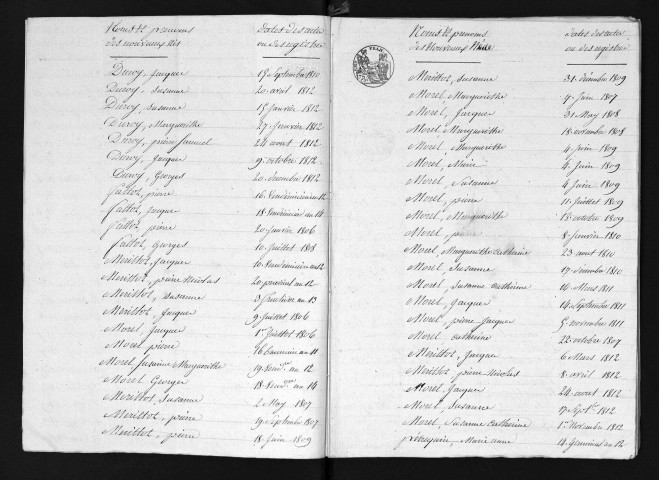 Noms et prenoms Dates des actes
des nouveaux nés ou des registres
Duroy, Jacques 15 Septembre 1810
Duroy, Susanne 20 avril 1812
Duroy, Susanne 15 Janvier 1812
Duroy, Marguerithe 27 Janvier 1812
Duroy, pierre Samuel 24 aout 1812
Duroy, Jacques 9 octobre 1812
Duroy, Georges 20 decembre 1812
Fallot, pierre 16 Vendémiaire an 12
Fallot, Jacques 18 Vendémiaire an 14
Fallot, pierre 20 Janvier 1806
Fallot, Georges 10 Juillet 1808
Merillot, Jacques 10 Vendémiaire an 12
Merillot, pierre Nicolas 20 prairial an 12
Merillot, Susanne 3 fructidor an 13
Merillot, Jacques 9 Juillet 1806
Morel, Jacques 1er Juillot 1806
Morel pierre 16 brumaire an 11
Morel Susanne Marguerithe 19 an 12
Morel Georges 18 an 14
Merillot, Susanne 2 May 1807
Merillot, pierre 19 Septembre 1807
Merillot, pierre 18 Juin 1809
Noms et prenoms Dates des actes
des Nouveaux Nées ou des registres
Merillot, Susanne 31 décembre 1809
Morel, Marguerithe 4 Juin 1807
Morel, Jacques 31 May 1808
Morel, Marguerithe 18 novembre 1808
Morel, Marguerithe 4 Juin 1809
Morel, Marie 4 Juin 1809
Morel, Susanne 4 Juin 1809
Morel, pierre 11 Juillet 1809
Morel, Marguerithe 15 octobre 1809
Morel, pierre 8 Janvier 1810
Morel, Marguerithe catherine 23 aout 1810
Morel, Susanne 17 decembre 1810
Morel, Susanne catherine 16 Mars 1811
Morel, Jacques 14 Septembre 1811
Morel, pierre Jacques 5 novembre 1811
Morel catherine 22 octobre 1807
Merillot, Jacques 6 Mars 1812
Merillot, pierre Nicolas 8 avril 1812
Morel, Jacques 24 avril 1812
Morel, Susanne 17 Septbre 1812
Morel, Susanne Catherine 1er Novembre 1812
Marie anne 14 Germinal an 12